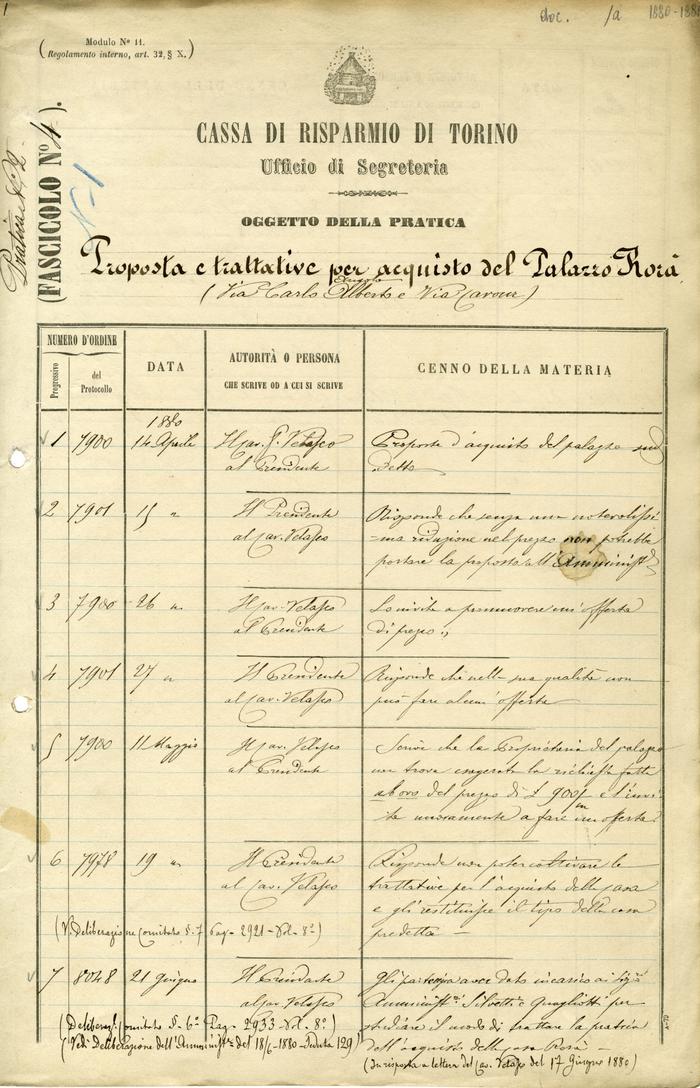 1
doc. /a 1880-1881
Modulo N° 11.
(Regolamento interno, art. 32, § X.)
Pratica N° 2
(FASCICOLO N° 4).
N-1
CASSA DI RISPARMIO DI TORINO
Ufficio di Segreteria
OGGETTO DELLA PRATICA
Proposta e trattative per acquisto del Palazzo Rorà
angolo
(Via Carlo Alberto e Via Cavour)
NUMERO D'ORDINE
Progressivo
del Protocollo
DATA
AUTORITÀ O PERSONA
CHE SCRIVE OD A CUI SI SCRIVE
CENNO DELLA MATERIA
1880
1 7900 14 Aprile Il Cav. Velasco Proposta d'acquisto del palazzo sud
al Presidente detto
2 7901 15 " Il Presidente Risponde che senza una notevolissi
al Cav. Velasco =ma riduzione nel prezzo non potrebbe
portare la proposta all'Amministr.
3 7900 26 " Il Cav. Velasco Lo invita a promuovere un'offerta
al Presidente di prezzo.
4 7901 27 " Il Presidente Risponde che nella sua qualità non
al Cav. Velasco può fare alcun'offerta
5 7900 11 Maggio Il Cav. Velasco Scrive che la Proprietaria del palazzo
al Presidente non trova esagerata la richiesta fatta
del prezzo di £ 900/m e l'invi
ta nuovamente a fare un'offerta.
6 7978 19 " Il Presidente Risponde non poter coltivare le
al Cav. Velasco trattative per l'acquisto della casa
e gli restituisce il tipo della casa
(V. Deliberazione Comitato §. 7 Pag. 2921 - Vol. 8°) predetta —
7 8048 21 Giugno Il Presidente gli partecipa aver dato incarico ai Sig.ri
al Cav. Velasco Amminist.ri Silvetti e Quagliotti per
(Deliberaz. Comitato §. 6° Pag. 2933 - Vol. 8°) studiare il modo di trattare la pratica
(Vedi Deliberazione dell'Amministr.ne del 18/6-1880- Seduta 129) dell'acquisto della casa Rorà —
(In risposta a lettera del Cav. Velasco del 17 Giugno 1880)